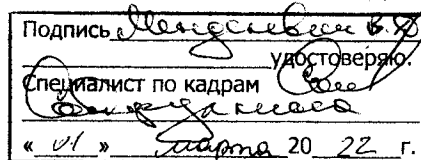 Подпись Менделевич В.Д.
удостоверяю.
Специалист по кадрам
« 01 » марта 20 22 г.